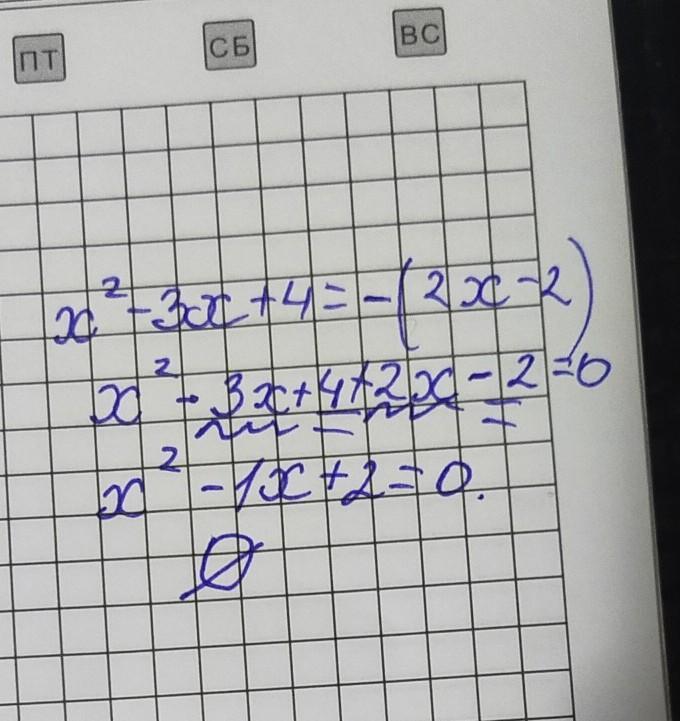 ПТ СБ ВС
x² - 3x + 4 = -(2x - 2)
x² - 3x + 4 + 2x - 2 = 0
x² - 1x + 2 = 0.
∅